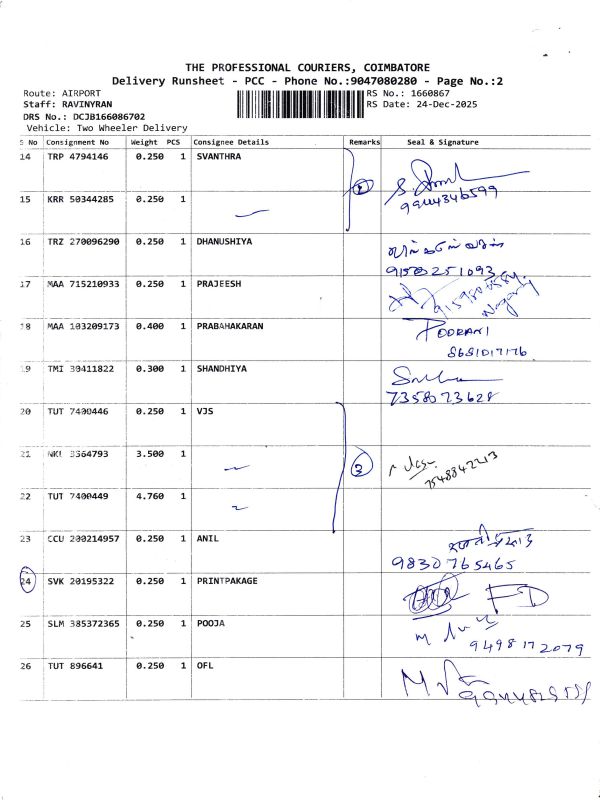 THE PROFESSIONAL COURIERS, COIMBATORE
Delivery Runsheet - PCC - Phone No.:9047080280 - Page No.:2
Route: AIRPORT RS No.: 1660867
Staff: RAVINYRAN RS Date: 24-Dec-2025
DRS No.: DCJB166086702
Vehicle: Two Wheeler Delivery
S No Consignment No Weight PCS Consignee Details Remarks Seal & Signature
14 TRP 4794146 0.250 1 SVANTHRA
15 KRR 50344285 0.250 1
16 TRZ 270096290 0.250 1 DHANUSHIYA
17 MAA 715210933 0.250 1 PRAJEESH
18 MAA 103209173 0.400 1 PRABAHAKARAN POORANI
8681017176
19 TMI 30411822 0.300 1 SHANDHIYA
7358073628
20 TUT 7400446 0.250 1 VJS
21 NKL 3364793 3.500 1 3
7548842213
22 TUT 7400449 4.760 1
23 CCU 200214957 0.250 1 ANIL
9830765465
24 SVK 20195322 0.250 1 PRINTPAKAGE FD
25 SLM 385372365 0.250 1 POOJA
9498172079
26 TUT 896641 0.250 1 OFL